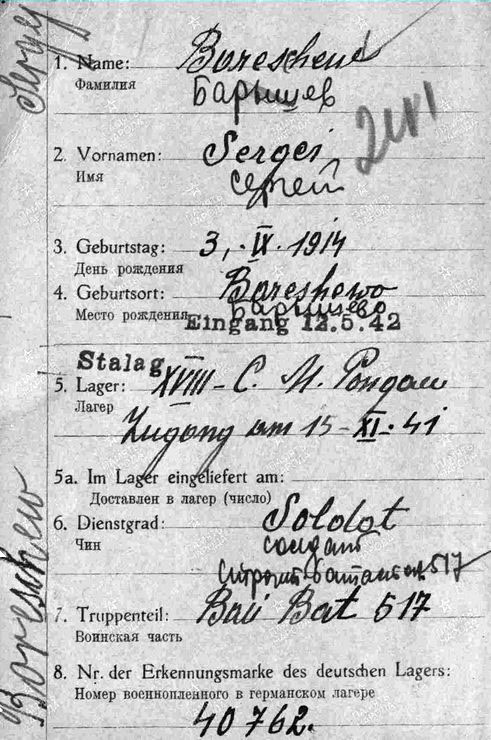 Sergej
1. Name: Boreschew
Фамилия Барышев
2. Vornamen: Sergei
Имя Сергей
3. Geburtstag: 3. IX. 1914
День рождения
4. Geburtsort: Boreshewo
Место рождения Барышево
Eingang 12.5.42
Stalag
5. Lager: XVIII-C. M. Pongau
Лагер
Zugang am 15-XI-41
5a. Im Lager eingeliefert am:
Доставлен в лагер (число)
6. Dienstgrad: Soldat
Чин солдат
строит. батальон 517
7. Truppenteil: Bau Bat 517
Воинская часть
8. Nr. der Erkennungsmarke des deutschen Lagers:
Номер военнопленного в германском лагере
40762.
Boreschew